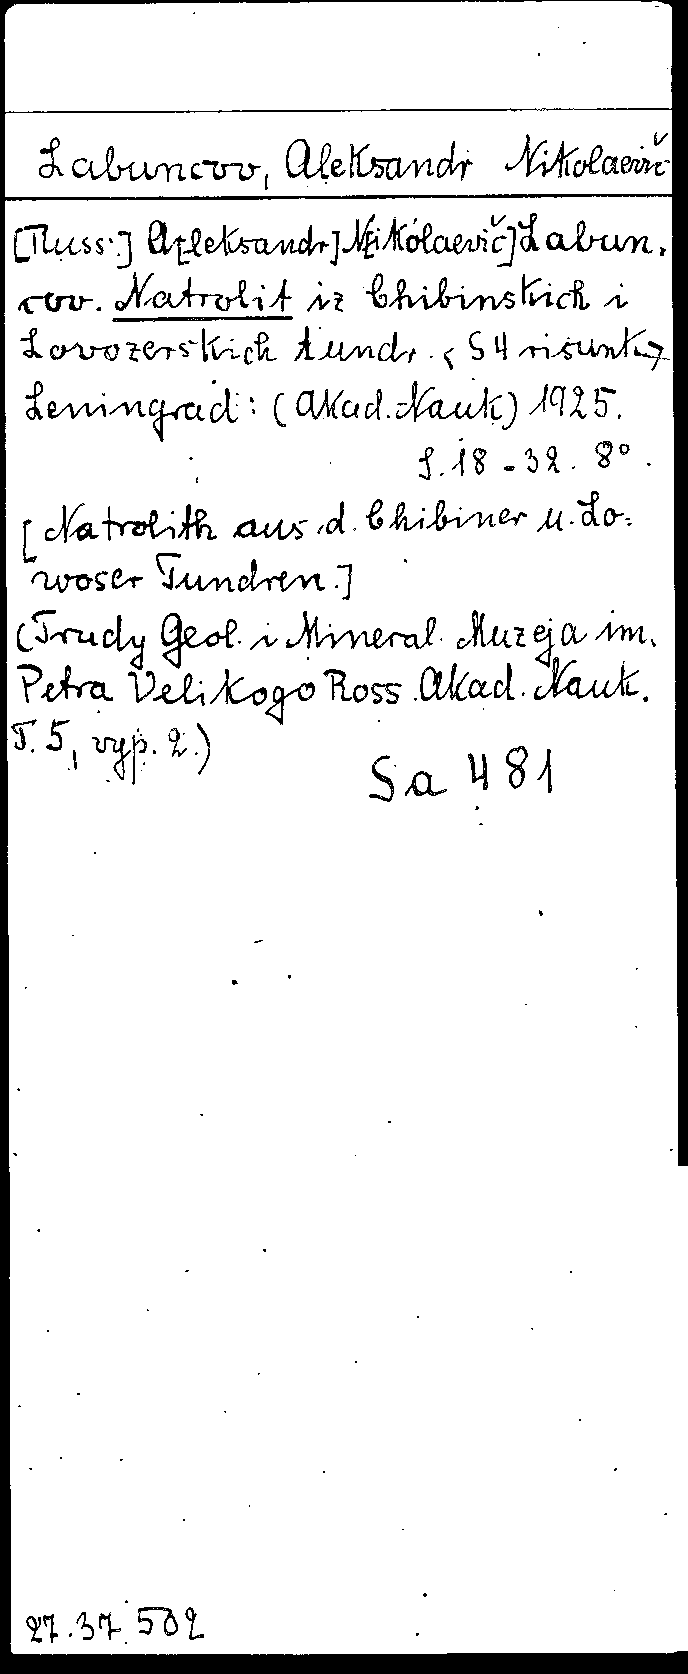 Labuncov, Aleksandr Nikolaevič
[Russ.] A[leksandr] N[ikolaevič] Labun-
cov. Natrolit iz Chibinskich i
Lovozerskich tundr. <S 4 risunk.>
Leningrad: (Akad. Nauk) 1925.
S. 18-32. 8°.
[Natrolith aus d. Chibiner u. Lo-
woser Tundren.]
(Trudy Geol. i Mineral. Muzeja im.
Petra Velikogo Ross. Akad. Nauk.
T. 5, vyp. 2.)
Sa 481
27.37 502